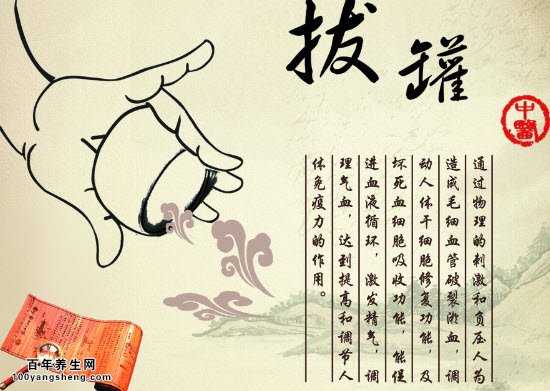 拔罐
中醫
通过物理的刺激和负压人为
造成毛细血管破裂淤血，调
动人体干细胞修复功能，及
坏死血细胞吸收功能，能促
进血液循环，激发精气，调
理气血，达到提高和调节人
体免疫力的作用。
百年养生网
100yangsheng.com